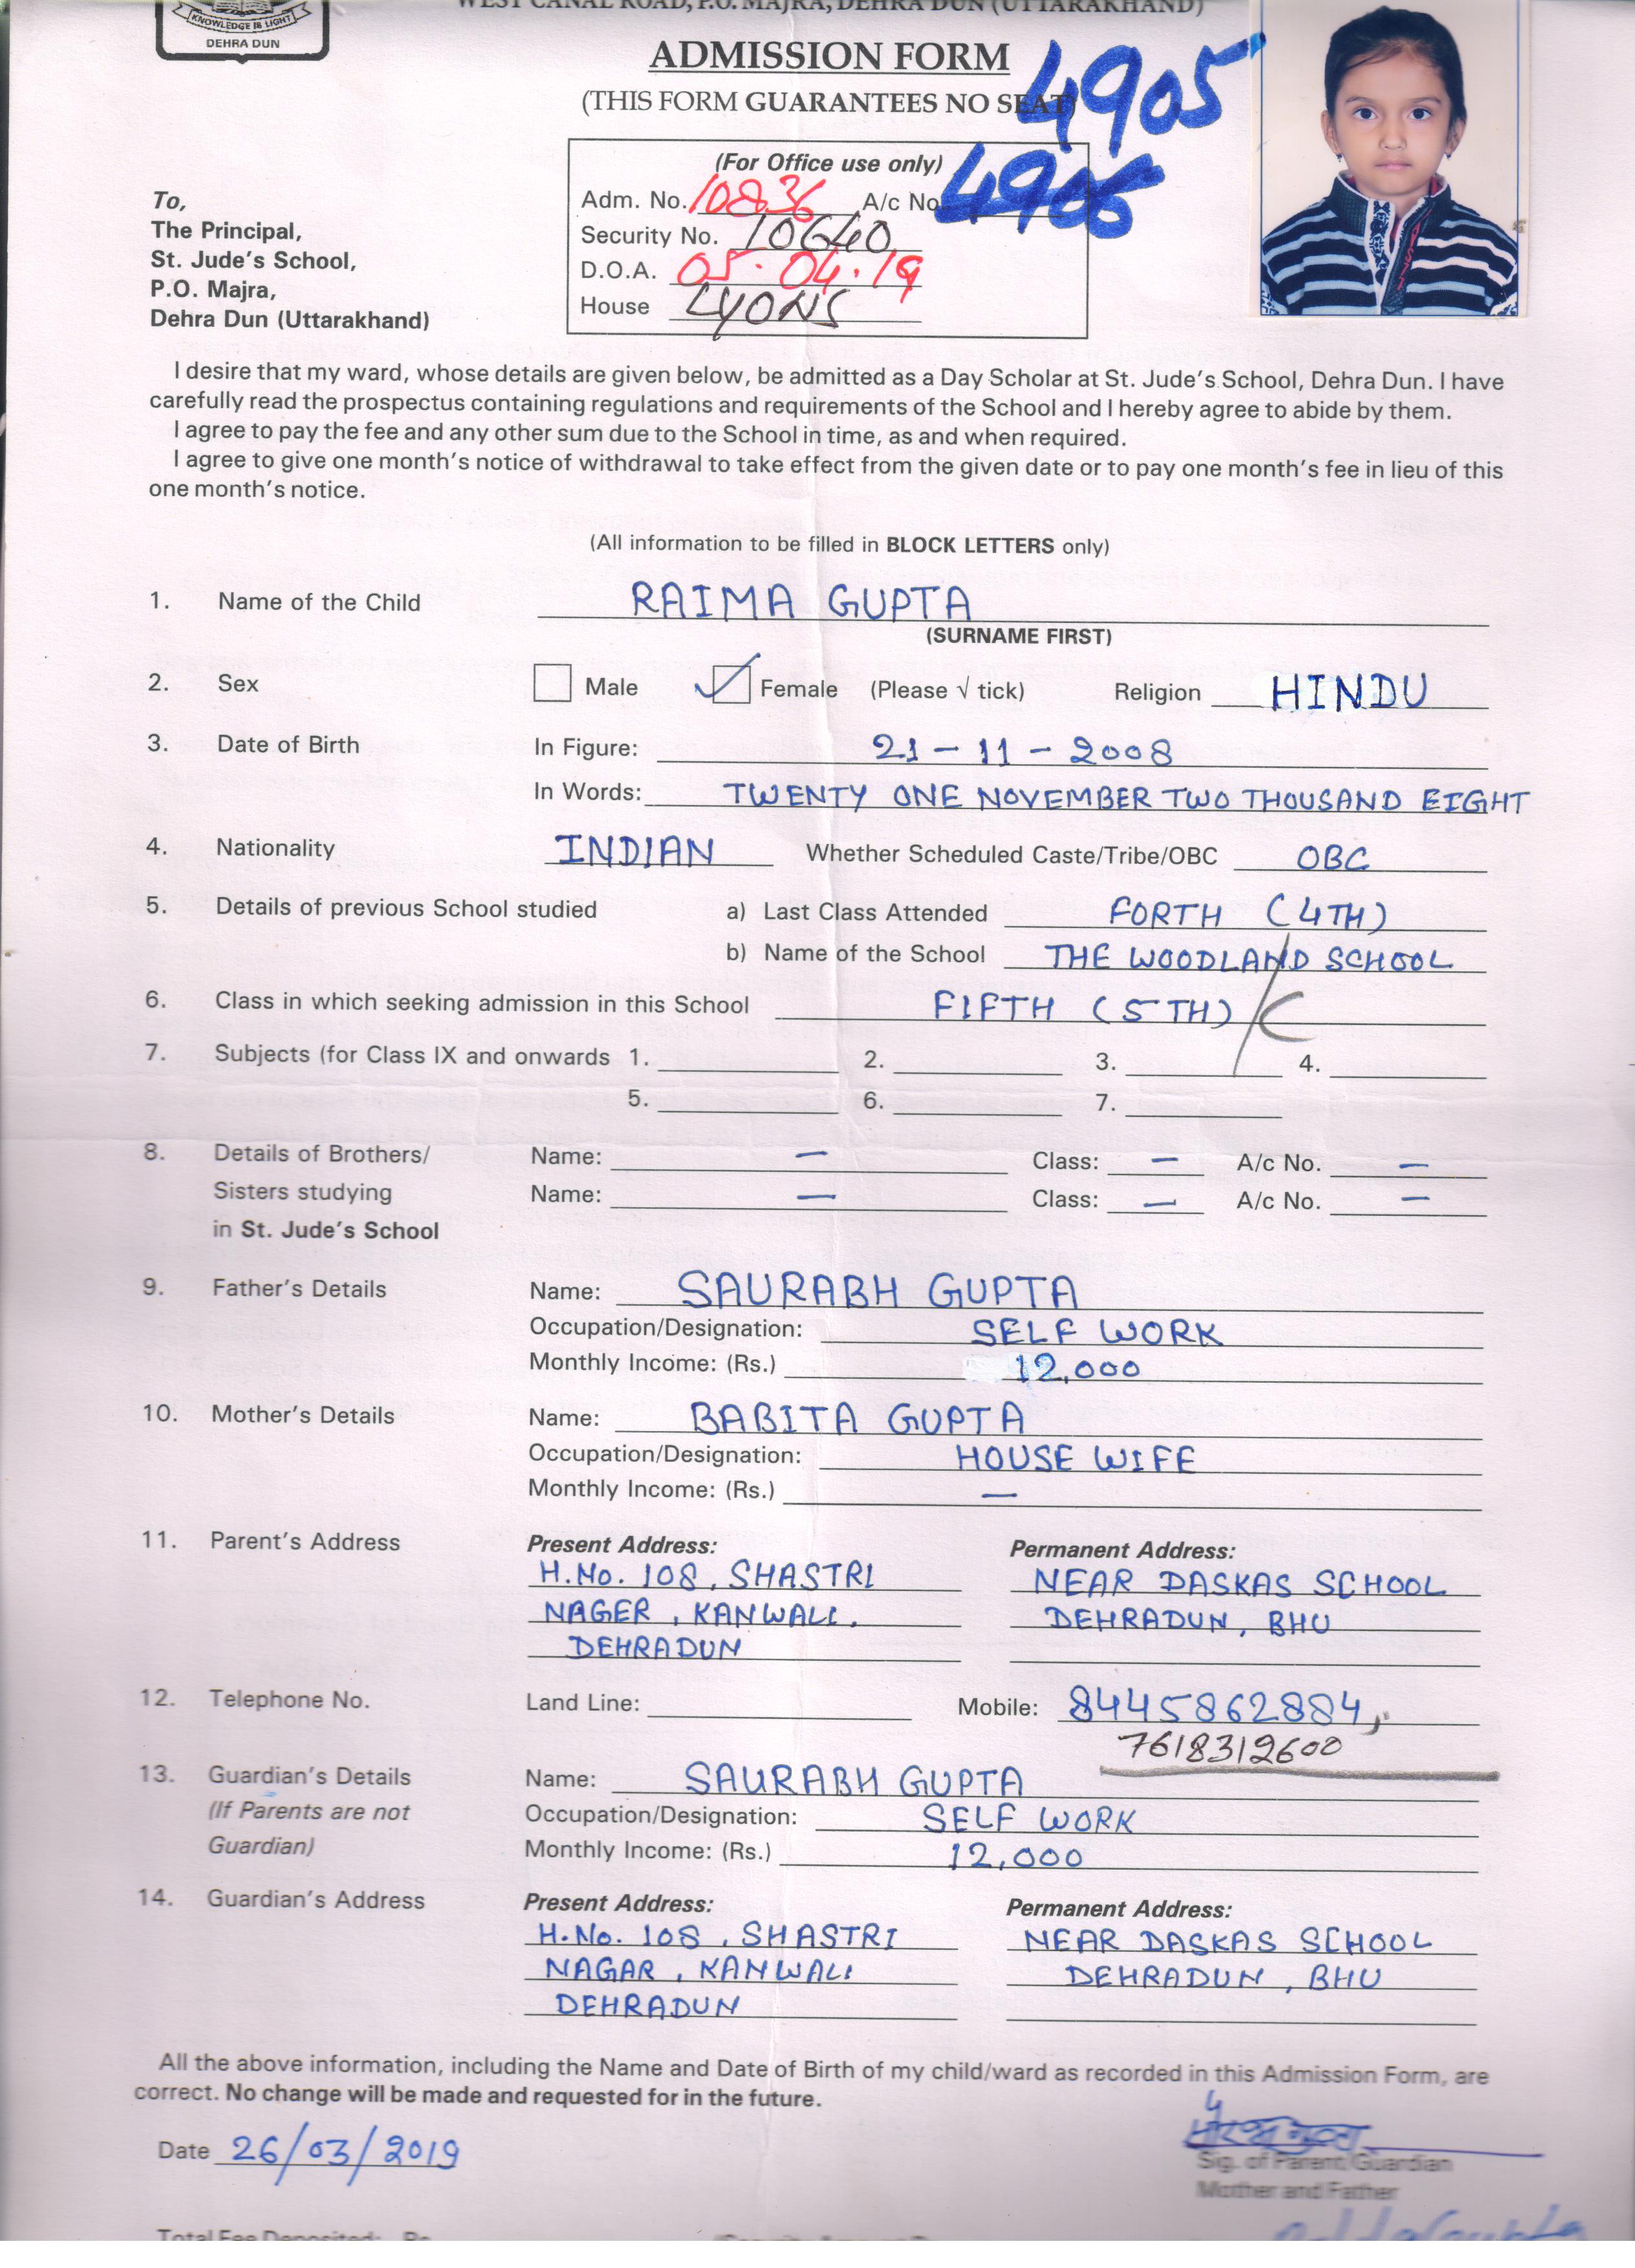 WEST CANAL ROAD, P.O. MAJRA, DEHRA DUN (UTTARAKHAND)
KNOWLEDGE IS LIGHT
DEHRA DUN
ADMISSION FORM
(THIS FORM GUARANTEES NO SEAT)
4905
(For Office use only)
Adm. No. 10836 A/c No. 4905
Security No. 10640
D.O.A. 05.04.19
House LYONS
To,
The Principal,
St. Jude's School,
P.O. Majra,
Dehra Dun (Uttarakhand)
I desire that my ward, whose details are given below, be admitted as a Day Scholar at St. Jude's School, Dehra Dun. I have
carefully read the prospectus containing regulations and requirements of the School and I hereby agree to abide by them.
I agree to pay the fee and any other sum due to the School in time, as and when required.
I agree to give one month's notice of withdrawal to take effect from the given date or to pay one month's fee in lieu of this
one month's notice.
(All information to be filled in BLOCK LETTERS only)
1. Name of the Child RAIMA GUPTA
(SURNAME FIRST)
2. Sex Male Female (Please √ tick) Religion HINDU
3. Date of Birth In Figure: 21 - 11 - 2008
In Words: TWENTY ONE NOVEMBER TWO THOUSAND EIGHT
4. Nationality INDIAN Whether Scheduled Caste/Tribe/OBC OBC
5. Details of previous School studied a) Last Class Attended FORTH (4TH)
b) Name of the School THE WOODLAND SCHOOL
6. Class in which seeking admission in this School FIFTH (5TH) / C
7. Subjects (for Class IX and onwards 1. 2. 3. 4.
5. 6. 7.
8. Details of Brothers/ Name: — Class: — A/c No. —
Sisters studying Name: — Class: — A/c No. —
in St. Jude's School
9. Father's Details Name: SAURABH GUPTA
Occupation/Designation: SELF WORK
Monthly Income: (Rs.) 12,000
10. Mother's Details Name: BABITA GUPTA
Occupation/Designation: HOUSE WIFE
Monthly Income: (Rs.) —
11. Parent's Address Present Address: Permanent Address:
H.No. 108, SHASTRI NEAR DASKAS SCHOOL
NAGER, KANWALI, DEHRADUN, BHU
DEHRADUN
12. Telephone No. Land Line: Mobile: 8445862884,
7618312600
13. Guardian's Details Name: SAURABH GUPTA
(If Parents are not Occupation/Designation: SELF WORK
Guardian) Monthly Income: (Rs.) 12,000
14. Guardian's Address Present Address: Permanent Address:
H.No. 108, SHASTRI NEAR DASKAS SCHOOL
NAGAR, KANWALI DEHRADUN, BHU
DEHRADUN
All the above information, including the Name and Date of Birth of my child/ward as recorded in this Admission Form, are
correct. No change will be made and requested for in the future.
Date 26/03/2019
Sig. of Parent/Guardian
Mother and Father
Total Fee Deposited: Rs.